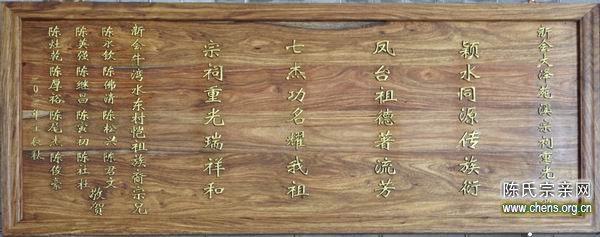 新会大泽莲溪宗祠重光
颖水同源传族衍
凤台祖德著流芳
七杰功名耀我祖
宗祠重光瑞祥和
新会牛湾水东村恺祖族裔宗兄
陈永钦 陈佛清 陈松兴 陈君文
陈美强 陈继昌 陈寅初 陈社壮
敬贺
陈灶乾 陈厚裕 陈尾杰 陈俊豪
二〇一二年壬辰秋
陈氏宗亲网
www.chens.org.cn